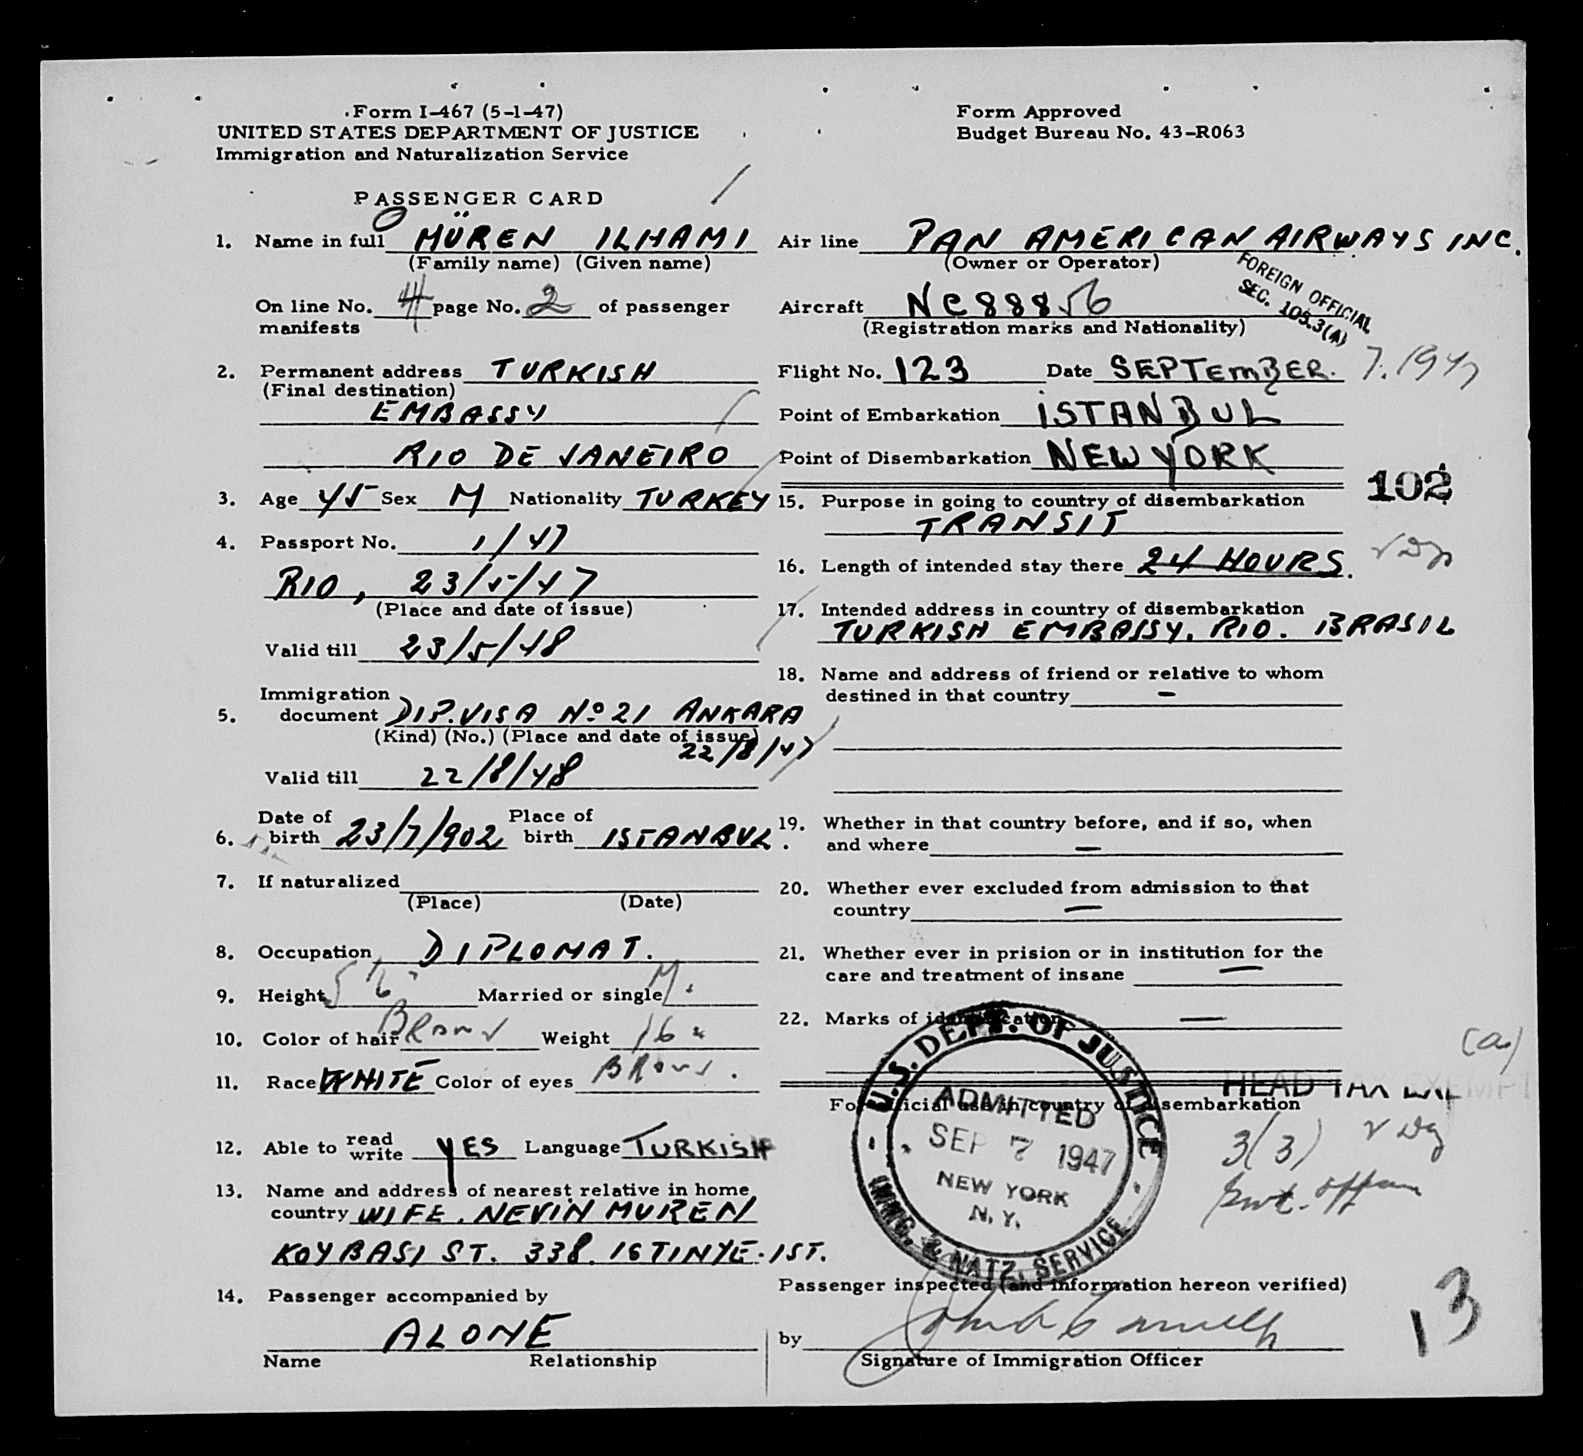 Form I-467 (5-1-47)
UNITED STATES DEPARTMENT OF JUSTICE
Immigration and Naturalization Service
Form Approved
Budget Bureau No. 43-R063
PASSENGER CARD
1. Name in full MÜREN ILHAMI
(Family name) (Given name)
On line No. 4 page No. 2 of passenger
manifests
2. Permanent address TURKISH
(Final destination)
EMBASSY
RIO DE JANEIRO
3. Age 45 Sex M Nationality TURKEY
4. Passport No. 1/47
RIO, 23/5/47
(Place and date of issue)
Valid till 23/5/48
5. Immigration
document DIP. VISA No 21 ANKARA
(Kind) (No.) (Place and date of issue)
22/8/47
Valid till 22/8/48
6. Date of birth 23/7/902 Place of birth ISTANBUL.
7. If naturalized
(Place) (Date)
8. Occupation DIPLOMAT.
9. Height 5'6" Married or single M.
10. Color of hair Brown Weight 160
11. Race WHITE Color of eyes Brown.
12. Able to read write YES Language TURKISH
13. Name and address of nearest relative in home
country WIFE. NEVIN MUREN
KOYBASI ST. 338. ISTINYE-IST.
14. Passenger accompanied by
ALONE
Name Relationship
Air line PAN AMERICAN AIRWAYS INC.
(Owner or Operator)
Aircraft NC88856
(Registration marks and Nationality)
FOREIGN OFFICIAL
SEC. 105.3(A)
Flight No. 123 Date SEPTEMBER. 7. 1947
Point of Embarkation ISTANBUL
Point of Disembarkation NEW YORK
102
15. Purpose in going to country of disembarkation
TRANSIT
16. Length of intended stay there 24 HOURS.
17. Intended address in country of disembarkation
TURKISH EMBASSY. RIO. BRASIL
18. Name and address of friend or relative to whom
destined in that country -
19. Whether in that country before, and if so, when
and where -
20. Whether ever excluded from admission to that
country -
21. Whether ever in prision or in institution for the
care and treatment of insane -
22. Marks of identification -
(a)
HEAD TAX EXEMPT
For official use in country of disembarkation
U.S. DEPT. OF JUSTICE
ADMITTED
SEP 7 1947
NEW YORK
N.Y.
IMMG. & NATZ. SERVICE
3(3)
Passenger inspected (and information hereon verified)
by
Signature of Immigration Officer
13